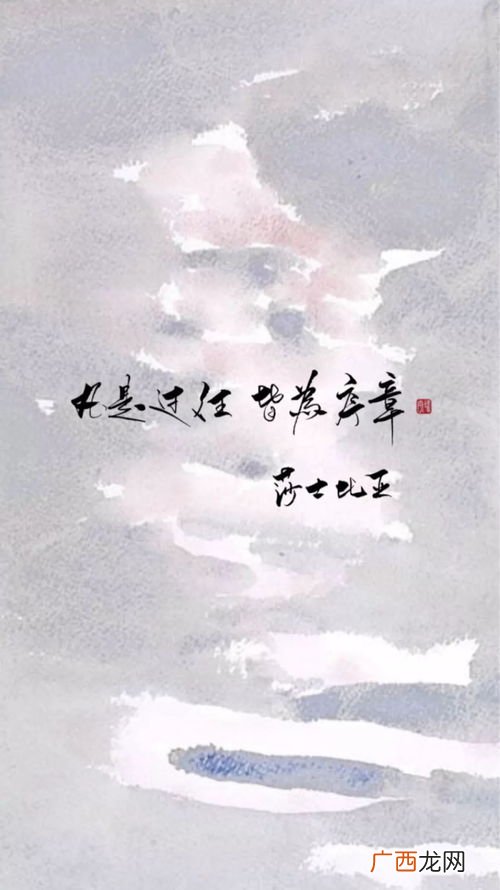 凡是过往 皆为序章
莎士比亚
广西龙网